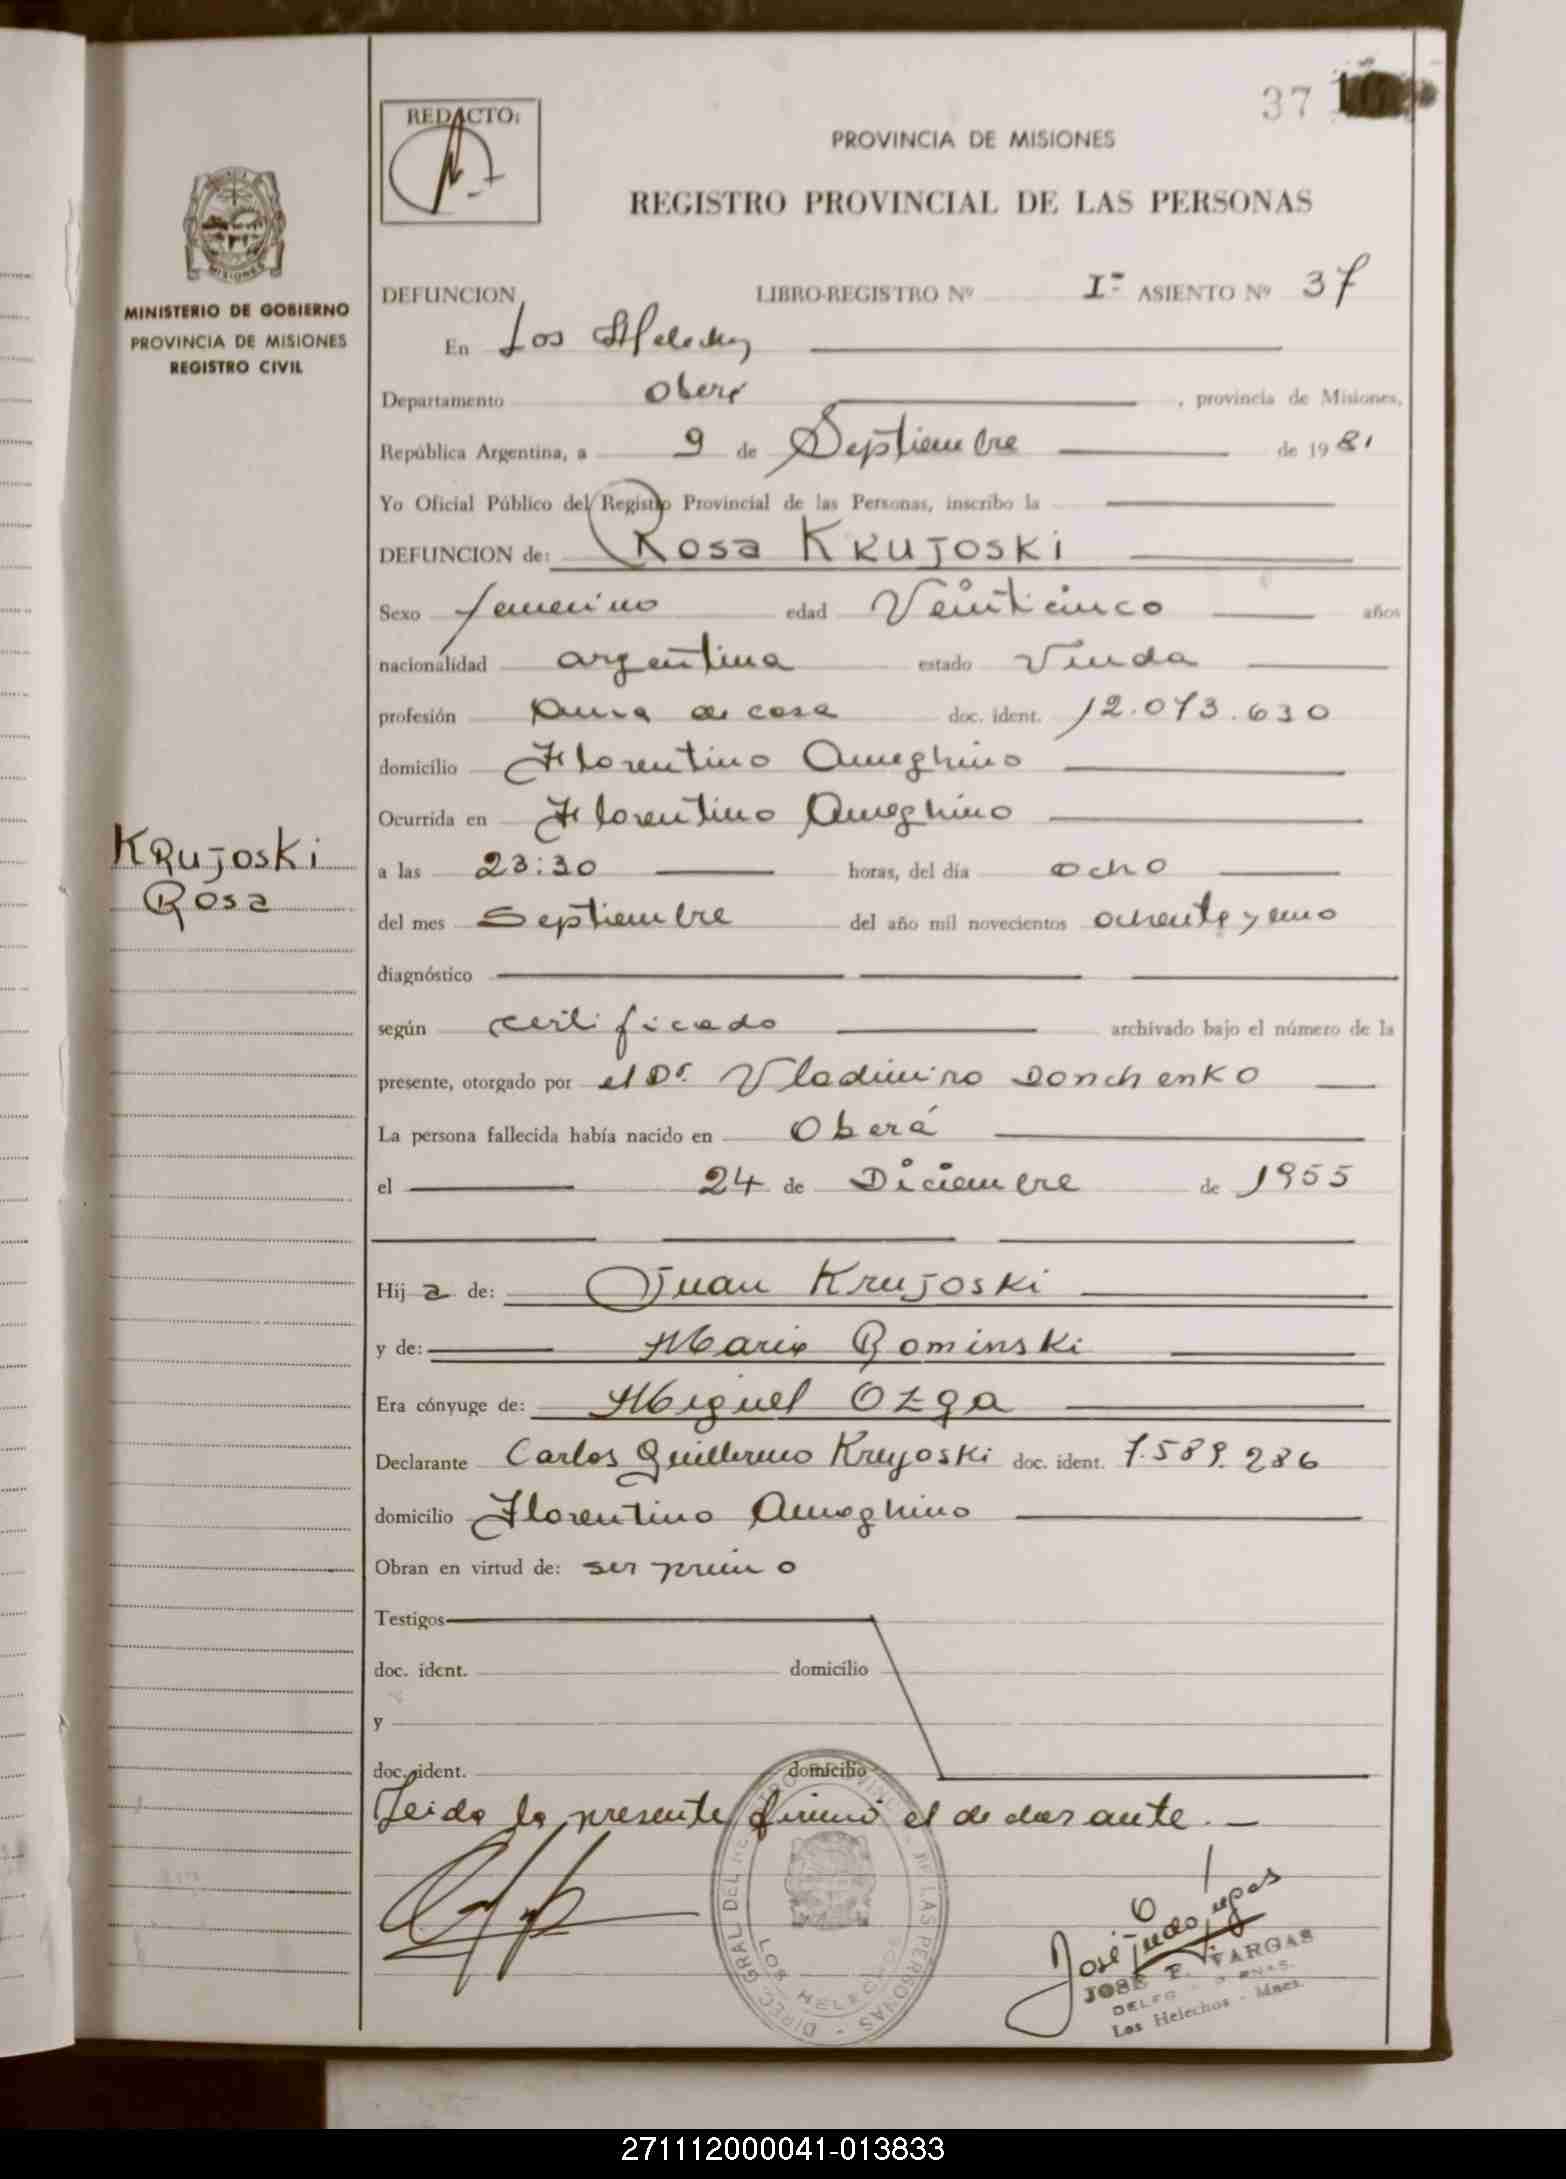 37
REDACTO:
PROVINCIA DE MISIONES
REGISTRO PROVINCIAL DE LAS PERSONAS
MISIONES
MINISTERIO DE GOBIERNO
PROVINCIA DE MISIONES
REGISTRO CIVIL
DEFUNCION LIBRO-REGISTRO Nº I- ASIENTO Nº 37
En Los Helechos
Departamento Oberá , provincia de Misiones,
República Argentina, a 9 de Septiembre de 1981
Yo Oficial Público del Registro Provincial de las Personas, inscribo la
DEFUNCION de: Rosa KRUJOSKi
Sexo femenino edad Veinticinco años
nacionalidad argentina estado Viuda
profesión ama de casa doc. ident. 12.073.630
domicilio Florentino Ameghino
Ocurrida en Florentino Ameghino
KRUJOSKi
Rosa
a las 23:30 horas, del día ocho
del mes Septiembre del año mil novecientos ochenta y uno
diagnóstico
según certificado archivado bajo el número de la
presente, otorgado por el Dr. Vladimiro Donchenko
La persona fallecida había nacido en Oberá
el 24 de Diciembre de 1955
Hij a de: Juan Krujoski
y de: Maria Rominski
Era cónyuge de: Miguel Ozga
Declarante Carlos Guillermo Krujoski doc. ident. 7.589.286
domicilio Florentino Ameghino
Obran en virtud de: ser primo
Testigos
doc. ident. domicilio
y
doc. ident. domicilio
Leida la presente firmó el declarante.
DIREC. GRAL DEL REGISTRO PROVINCIAL DE LAS PERSONAS
LOS HELECHOS
JOSE F. VARGAS
Los Helechos - Mnes.
271112000041-013833